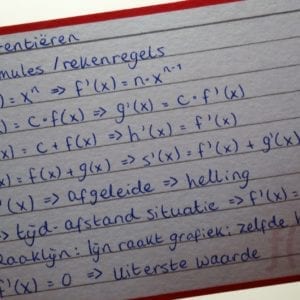 entiëren
mules / rekenregels
) = xⁿ => f'(x) = n·xⁿ⁻¹
) = c·f(x) => g'(x) = c·f'(x)
x) = c + f(x) => h'(x) = f'(x)
x) = f(x) + g(x) => s'(x) = f'(x) + g'(x)
'(x) => afgeleide => helling
=> tijd-afstand situatie => f'(x) =
Raaklijn: lijn raakt grafiek: zelfde h
f'(x) = 0 => Uiterste waarde